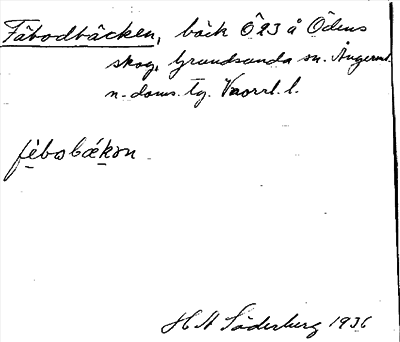 Fäbodbäcken, bäck Ö23 å Ödens
skog, Grundsunda sn. Ångerml.
n. doms. tg. Vnorrl. l.
fèbωbǽkən
H A Söderberg 1936